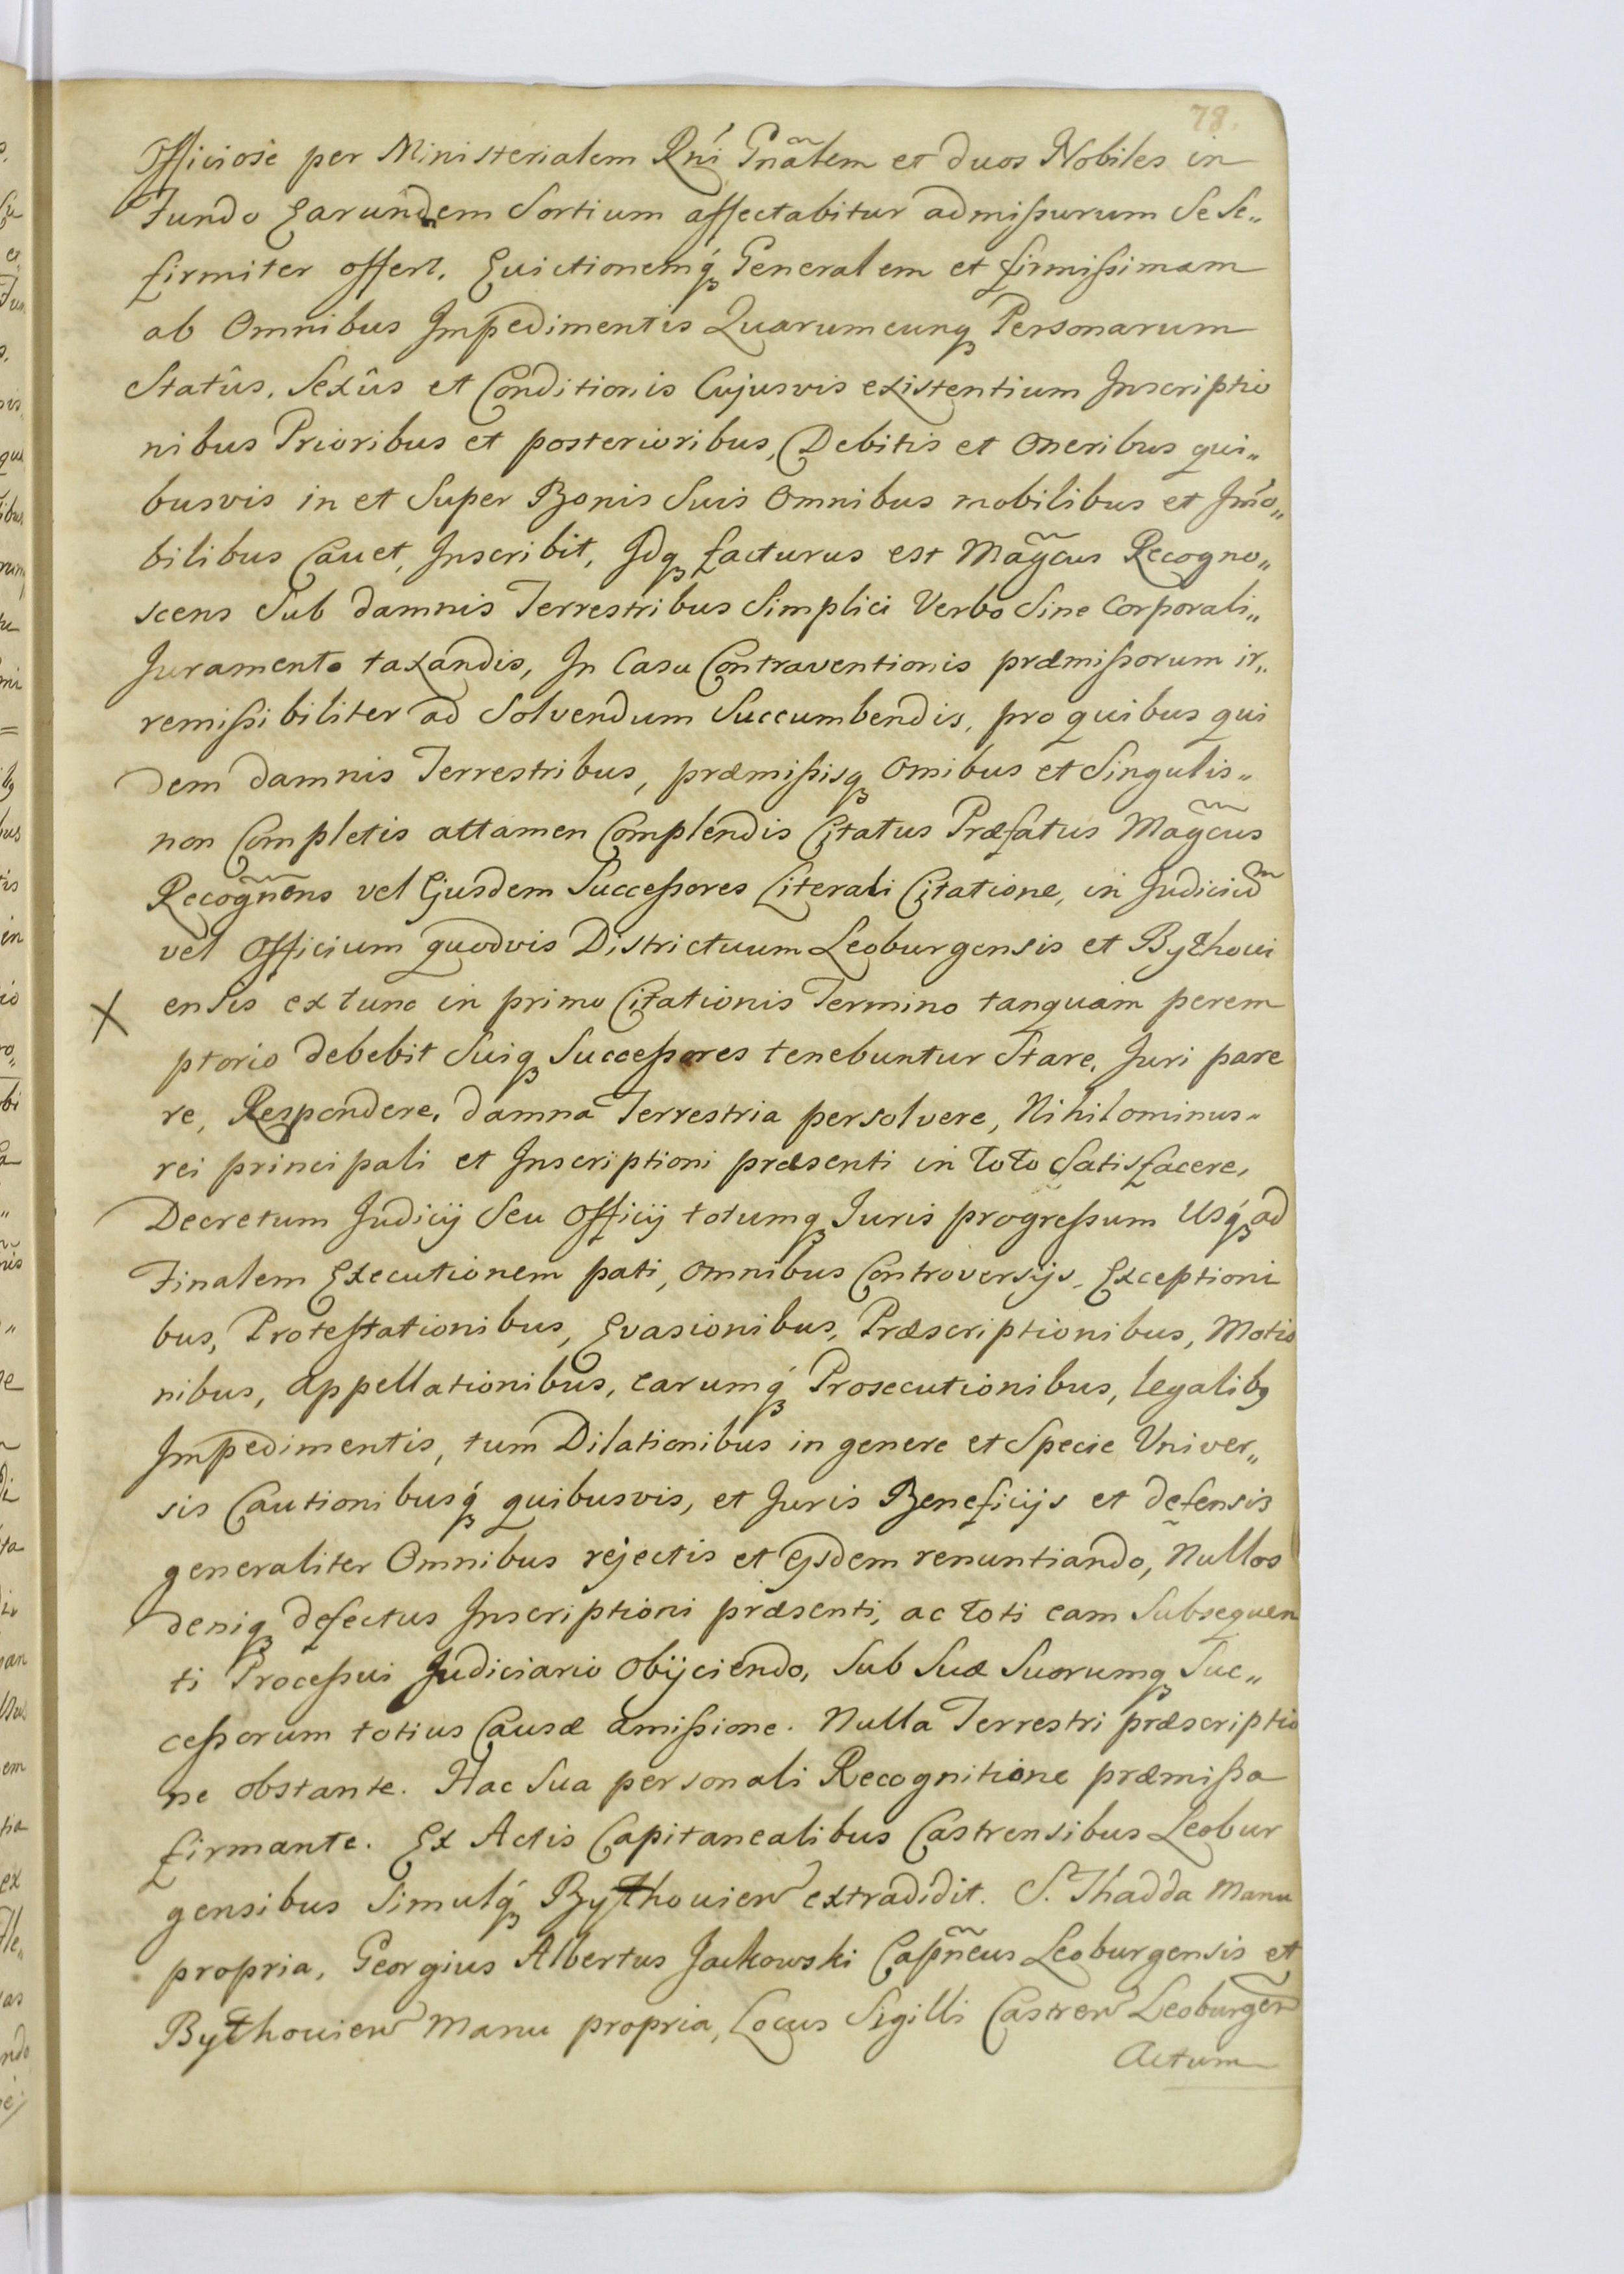 78.
Officiosè per Ministerialem Rn̄i Gnãlem et duos Nobiles in
Fundo Earundem Sortium affectabitur admißurum Se Se„
firmiter offert. Euictionemq́ꝫ Generalem et firmißimam
ab Omnibus Impedimentis Quarumcunqꝫ Personarum
Statûs, Sexûs et Conditionis Cujusvis existentium Inscriptio
nibus Prioribus et posterioribus, Debitis et Oneribus qui„
busvis in et Super Bonis Suis Omnibus mobilibus et Im̃o„
bilibus Cauet, Inscribit, Idqꝫ facturus est Mag̃cus Recogno„
scens Sub damnis Terrestribus Simplici Verbo Sine Corporali„
Juramento taxandis, In Casu Contraventionis præmißorum ir„
remißibiliter ad Solvendum Succumbendis, pro quibus qui
dem damnis Terrestribus, præmißisqꝫ Omibus et Singulis„
non Completis attamen Complendis Citatus Præfatus Mag̃cus
Recogñens vel Ejusdem Succeßores Literali Citatione, in Judiciũ
vel Officium quodvis Districtuum Leoburgensis et Bythoui
X ensis ex tunc in primo Citationis Termino tanquam perem
ptorio debebit Suiqꝫ Succeßores tenebuntur Stare, Juri pare
re, Respondere, damna Terrestria persolvere, Nihilominus„
rei principali et Inscriptioni præsenti in toto Satisfacere,
Decretum Judicij Seu Officij totumqꝫ Juris progreßum Usq́ꝫ ad
Finalem Executionem pati, Omnibus Controversijs, Exceptioni
bus, Protestationibus, Evasionibus, Præscriptionibus, Motio
nibus, Appellationibus, earumq́ꝫ Prosecutionibus, legalibꝫ
Impedimentis, tum Dilationibus in genere et Specie Univer„
sis Cautionibusq́ꝫ quibusvis, et Juris Beneficijs et defensis
generaliter Omnibus rejectis et ejsdem renuntiando, Nullos
deniqꝫ defectus Inscriptioni præsenti, ac toti eam Subsequen
ti Proceßui Judiciario Obijciendo, Sub Suæ Suorumqꝫ Suc„
ceßorum totius Causæ amißione. Nulla Terrestri præscriptio
ne obstante. Hac Sua personali Recognitione præmißa
firmante. Ex Actis Capitanealibus Castrensibus Leobur
gensibus Simulq́ꝫ Bythouien extradidit. S. Thadda Manu
propria, Georgius Albertus Jackowski Capñeus Leoburgensis et
Bythouien Manu propria, Locus Sigilli Castren Leoburgen
Actum